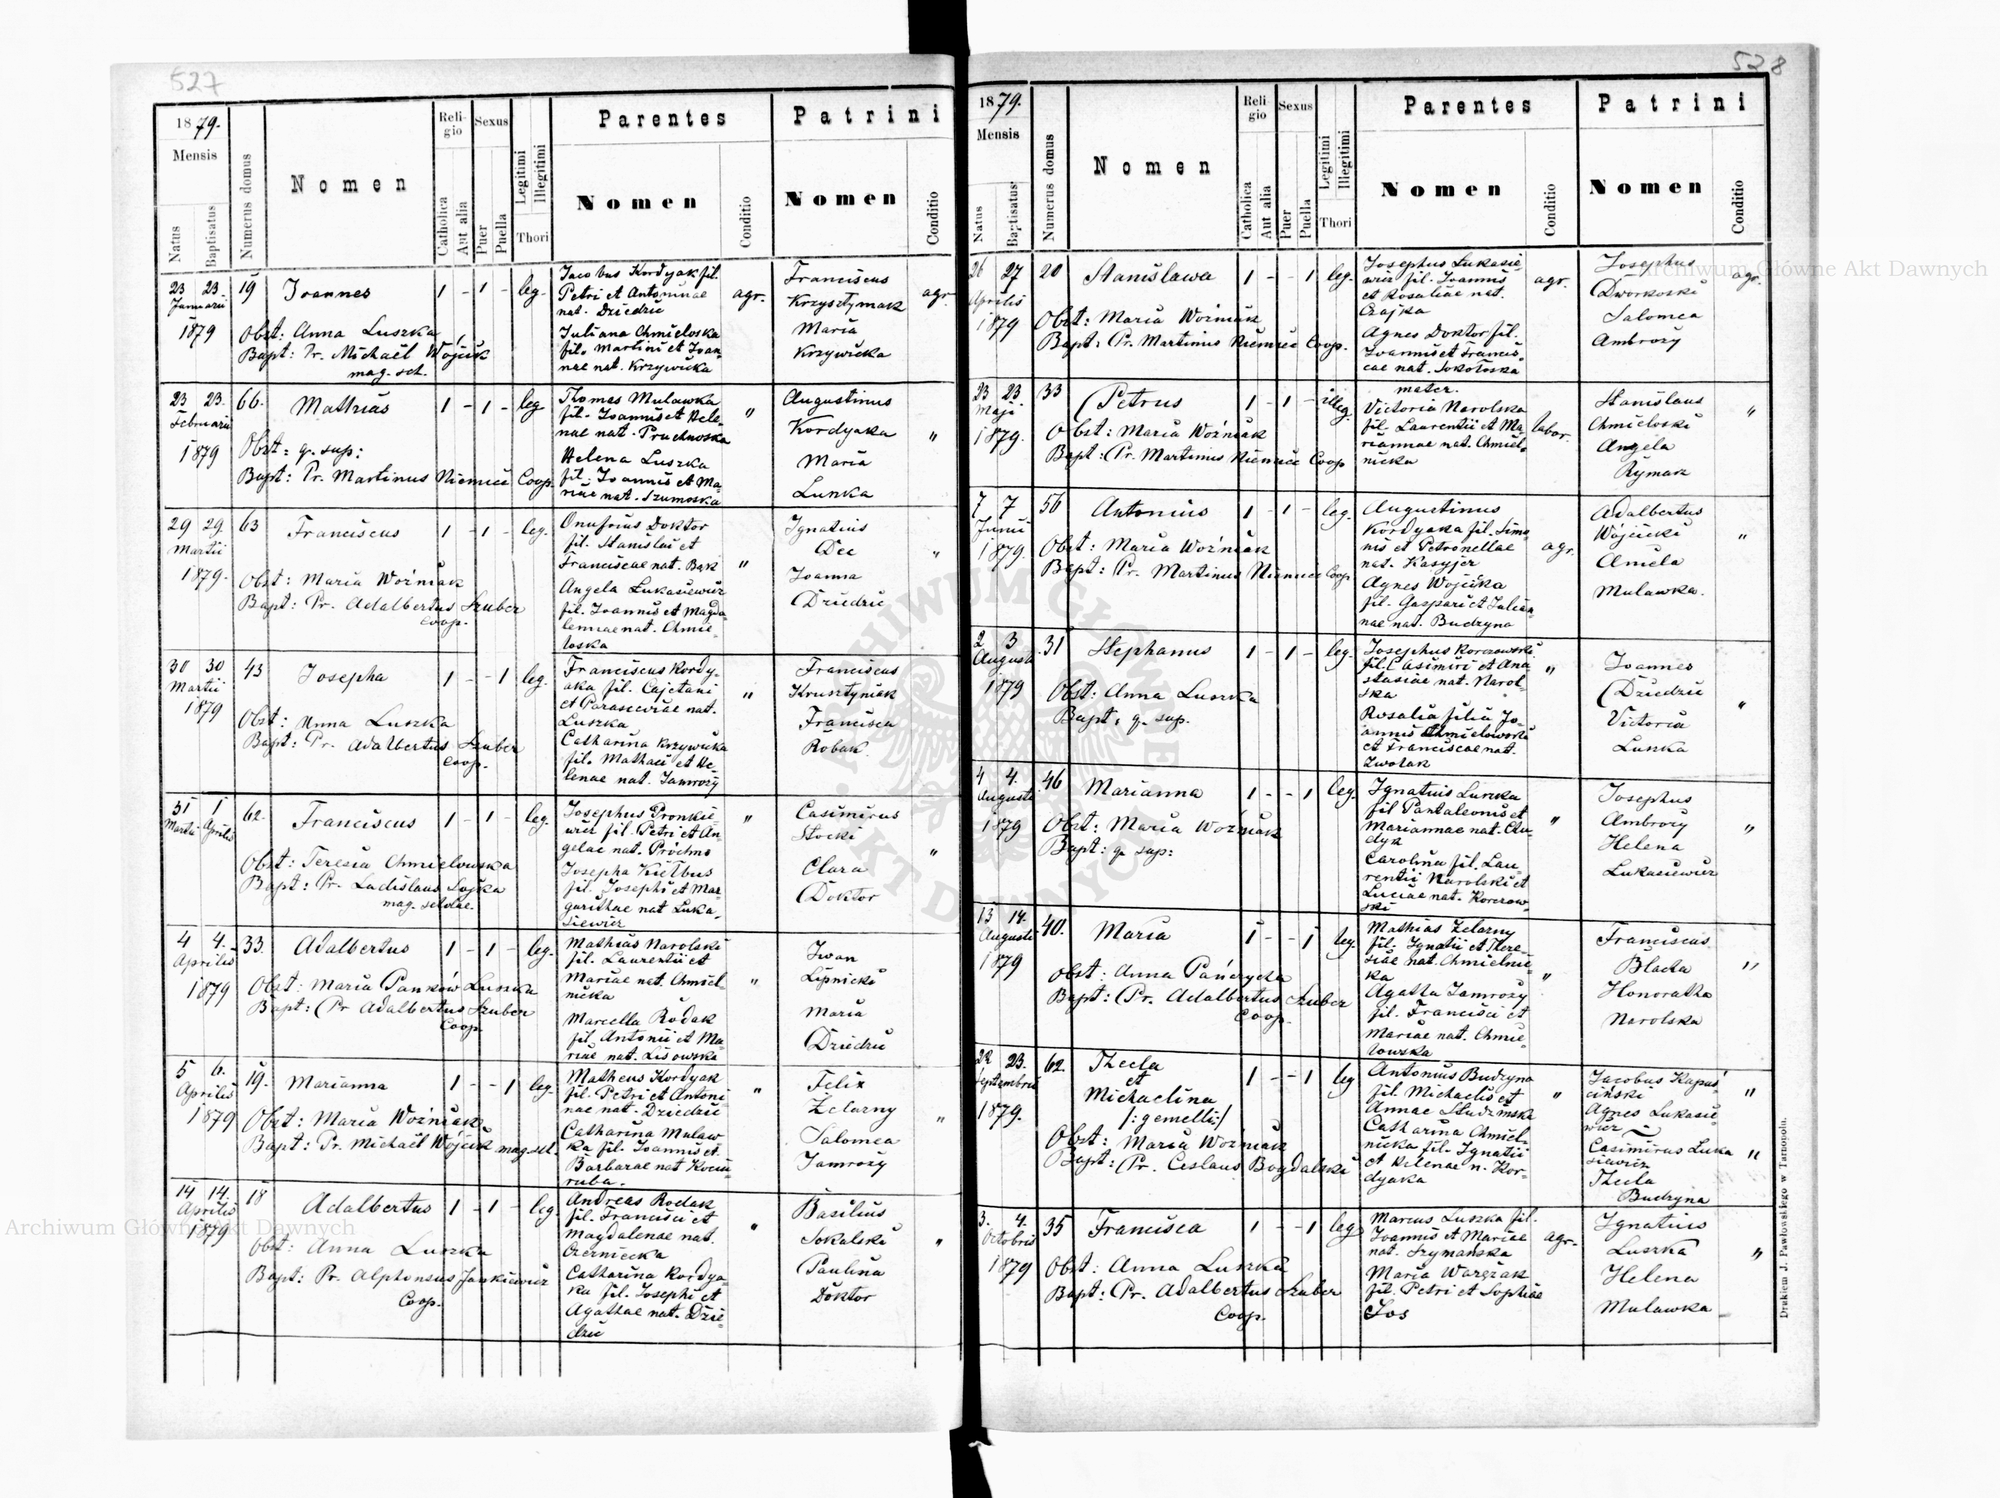 527
1879.
Mensis
Natus
Baptisatus
Numerus domus
Nomen
Religio
Catholica
Aut alia
Sexus
Puer
Puella
Legitimi
Illegitimi
Thori
Parentes
Nomen
Conditio
Patrini
Nomen
Conditio
23 23. 19 Joannes 1 - 1 - leg.
Januarii
1879
Obst: Anna Luszka
Bapt: Pr. Michaël Wójcik
mag. sch.
Jacobus Kordyak fil.
Petri et Antoninae
nat. Dziedzic
agr.
Juliana Chmieloska
fil. Martini et Joan
nae nat. Krzywicka
Franciscus
Krzysztymak
agr.
Maria
Krzywicka
23 23. 66. Mathias 1 - 1 - leg
Februarii
1879
Obst: q. sup:
Bapt: Pr. Martinus Niemiec Coop.
Thomas Mulawka
fil. Joannis et Hele-
nae nat. Pruchnoska
"
Helena Luszka
fil. Joannis et Ma-
riae nat. Szumoska
Augustinus
Kordyaka
"
Maria
Lunka
29 29. 63 Franciscus 1 - 1 - leg.
Martii
1879.
Obst: Maria Woźniak
Bapt: Pr. Adalbertus Szuber
Coop.
Onufrius Doktor
fil. Stanislai et
Franciscae nat. Bąk
"
Angela Łukasiewicz
fil. Joannis et Magda-
lennae nat. Chmie-
loska
Ignatius
Dec
"
Joanna
Dziedzic
30 30 43 Josepha 1 - - 1 leg.
Martii
1879
Obst: Anna Luszka
Bapt: Pr. Adalbertus Szuber
Coop.
Franciscus Kordy-
aka fil. Cajetani
et Parasceviae nat.
Luszka
"
Catharina Krzywicka
fil. Mathaei et He-
lenae nat. Jamroży
Franciscus
Krusztyniak
Francisca
Robak
31 1 62. Franciscus 1 - 1 - leg.
Martii Aprilis
Obst: Teresia Chmielowska
Bapt: Pr. Ladislaus Sojka
mag. scholae.
Josephus Gronkie-
wicz fil. Petri et An-
gelae nat. Próchno
"
Josepha Kiełbus
fil. Josephi et Mar-
garithae nat Łuka-
siewicz
Casimirus
Stocki
"
Clara
Doktor
4 4. 33. Adalbertus 1 - 1 - leg.
Aprilis
1879
Obst: Maria Panków Luszka
Bapt: Pr Adalbertus Szuber
Coop.
Mathias Narolski
fil. Laurentii et
Mariae nat. Chmiel-
nicka
"
Marcella Rodak
fil. Antonii et Ma-
riae nat. Lisowska
Iwan
Lipnicki
Maria
Dziedzic
5 6. 19. Marianna 1 - - 1 leg.
Aprilis
1879
Obst: Maria Woźniak
Bapt: Pr. Michaël Wójcik mag. sch.
Matheus Kordyak
fil. Petri et Antoni
nae nat. Dziedzic
"
Catharina Mulaw-
ka fil. Joannis et
Barbarae nat Kociu
ruba.
Felix
Żelazny
"
Salomea
Jamroży
14 14. 18 Adalbertus 1 - 1 - leg.
Aprilis
1879
Obst: Anna Luszka
Bapt: Pr. Alphonsus Jankiewicz
Coop.
Andreas Rodak
fil. Francisci et
Magdalenae nat.
Czerniecka
"
Catharina Kordya-
ka fil. Josephi et
Agathae nat. Dzie-
dzic
Basilius
Sokalski
"
Paulina
Doktor
528
1879.
Mensis
Natus
Baptisatus
Numerus domus
Nomen
Religio
Catholica
Aut alia
Sexus
Puer
Puella
Legitimi
Illegitimi
Thori
Parentes
Nomen
Conditio
Patrini
Nomen
Conditio
26 27 20 Stanislawa 1 - - 1 leg.
Aprilis
1879
Obst: Maria Woźniak
Bapt: Pr. Martinus Niemiec Coop.
Josephus Łukasie-
wicz fil. Joannis
et Rosaliae nat.
Czajka
agr.
Agnes Doktor fil.
Joannis et Francis-
cae nat. Sokołoska
Josephus
Dworkoski
agr.
Salomea
Ambroży
23 23 33 Petrus 1 - 1 - illeg.
Maji
1879.
Obst: Maria Woźniak
Bapt: Pr. Martinus Niemiec Coop
mater.
Victoria Narolska
fil. Laurentii et Ma-
riannae nat. Chmiel-
nicka
labor.
Stanislaus
Chmieloski
"
Angela
Rymarz
7 7 56 Antonius 1 - 1 - leg.
Junii
1879.
Obst: Maria Woźniak
Bapt: Pr. Martinus Niemiec Coop
Augustinus
Kordyaka fil. Simo
nis et Petronellae
nat. Kasyjer
agr.
Agnes Wojcicka
fil. Gaspari et Julian-
nae nat. Budzyna
Adalbertus
Wojcicki
"
Amela
Mulawka.
2 3 31 Stephanus 1 - 1 - leg.
Augusti
1879
Obst: Anna Luszka
Bapt: q. sup.
Josephus Korczowski
fil. Casimiri et Ana
stasiae nat. Narol-
ska
"
Rosalia filia Jo-
annis Chmielowski
et Franciscae nat.
Zwolak
Joannes
Dziedzic
"
Victoria
Lunka
4 4. 46 Marianna 1 - - 1 leg.
Augusti
1879
Obst: Maria Woźniak
Bapt: q. sup:
Ignatius Luszka
fil Pantaleonis et
Mariannae nat.
"
Carolina fil. Lau-
rentii Narolski et
Luciae nat. Korczow-
ski
Josephus
Ambroży
"
Helena
Lukasiewicz
13 14. 40. Maria 1 - - 1 leg.
Augusti
1879
Obst: Anna Pańczycha
Bapt: Pr. Adalbertus Szuber
Coop.
Mathias Żelazny
fil. Ignatii et There-
siae nat. Chmielnic-
ka
"
Agatha Jamroży
fil. Francisci et
Mariae nat. Chmie-
lowska
Franciscus
Blacha
"
Honoratha
Narolska
22 23. 62. Thecla 1 - - 1 leg
Septembris
et
Michaelina
/: gemelli :/
1879.
Obst: Maria Woźniak
Bapt: Pr. Ceslaus Bogdalski
Antonius Budzyna
fil. Michaelis et
Annae Studzinska
"
Catharina Chmiel-
nicka fil. Ignatii
et Helenae n. Kor-
dyaka
Jacobus Kapuś-
ciński
"
Agnes Łukasie-
wicz
Casimirus Łuka
siewicz
"
Thecla
Budzyna
3. 4. 35 Francisca 1 - - 1 leg
Octobris
1879
Obst: Anna Luszka
Bapt: Pr. Adalbertus Szuber
Coop.
Marcus Luszka fil.
Joannis et Mariae
nat. Szymańska
agr.
Maria Warężak
fil. Petri et Sophiae
Łos
Ignatius
Luszka
"
Helena
Mulawka
Drukiem J. Pawłowskiego w Tarnopolu.
Archiwum Główne Akt Dawnych
Archiwum Główne Akt Dawnych
ARCHIWUM GŁÓWNE AKT DAWNYCH